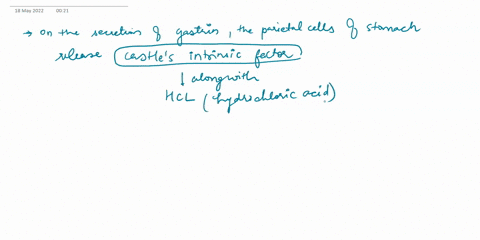 18 May 2022 00:21
→ on the secretion of gastrin, the parietal cells of stomach
release castle's intrinsic factor
↓ alongwith
HCL (hydrochloric acid)